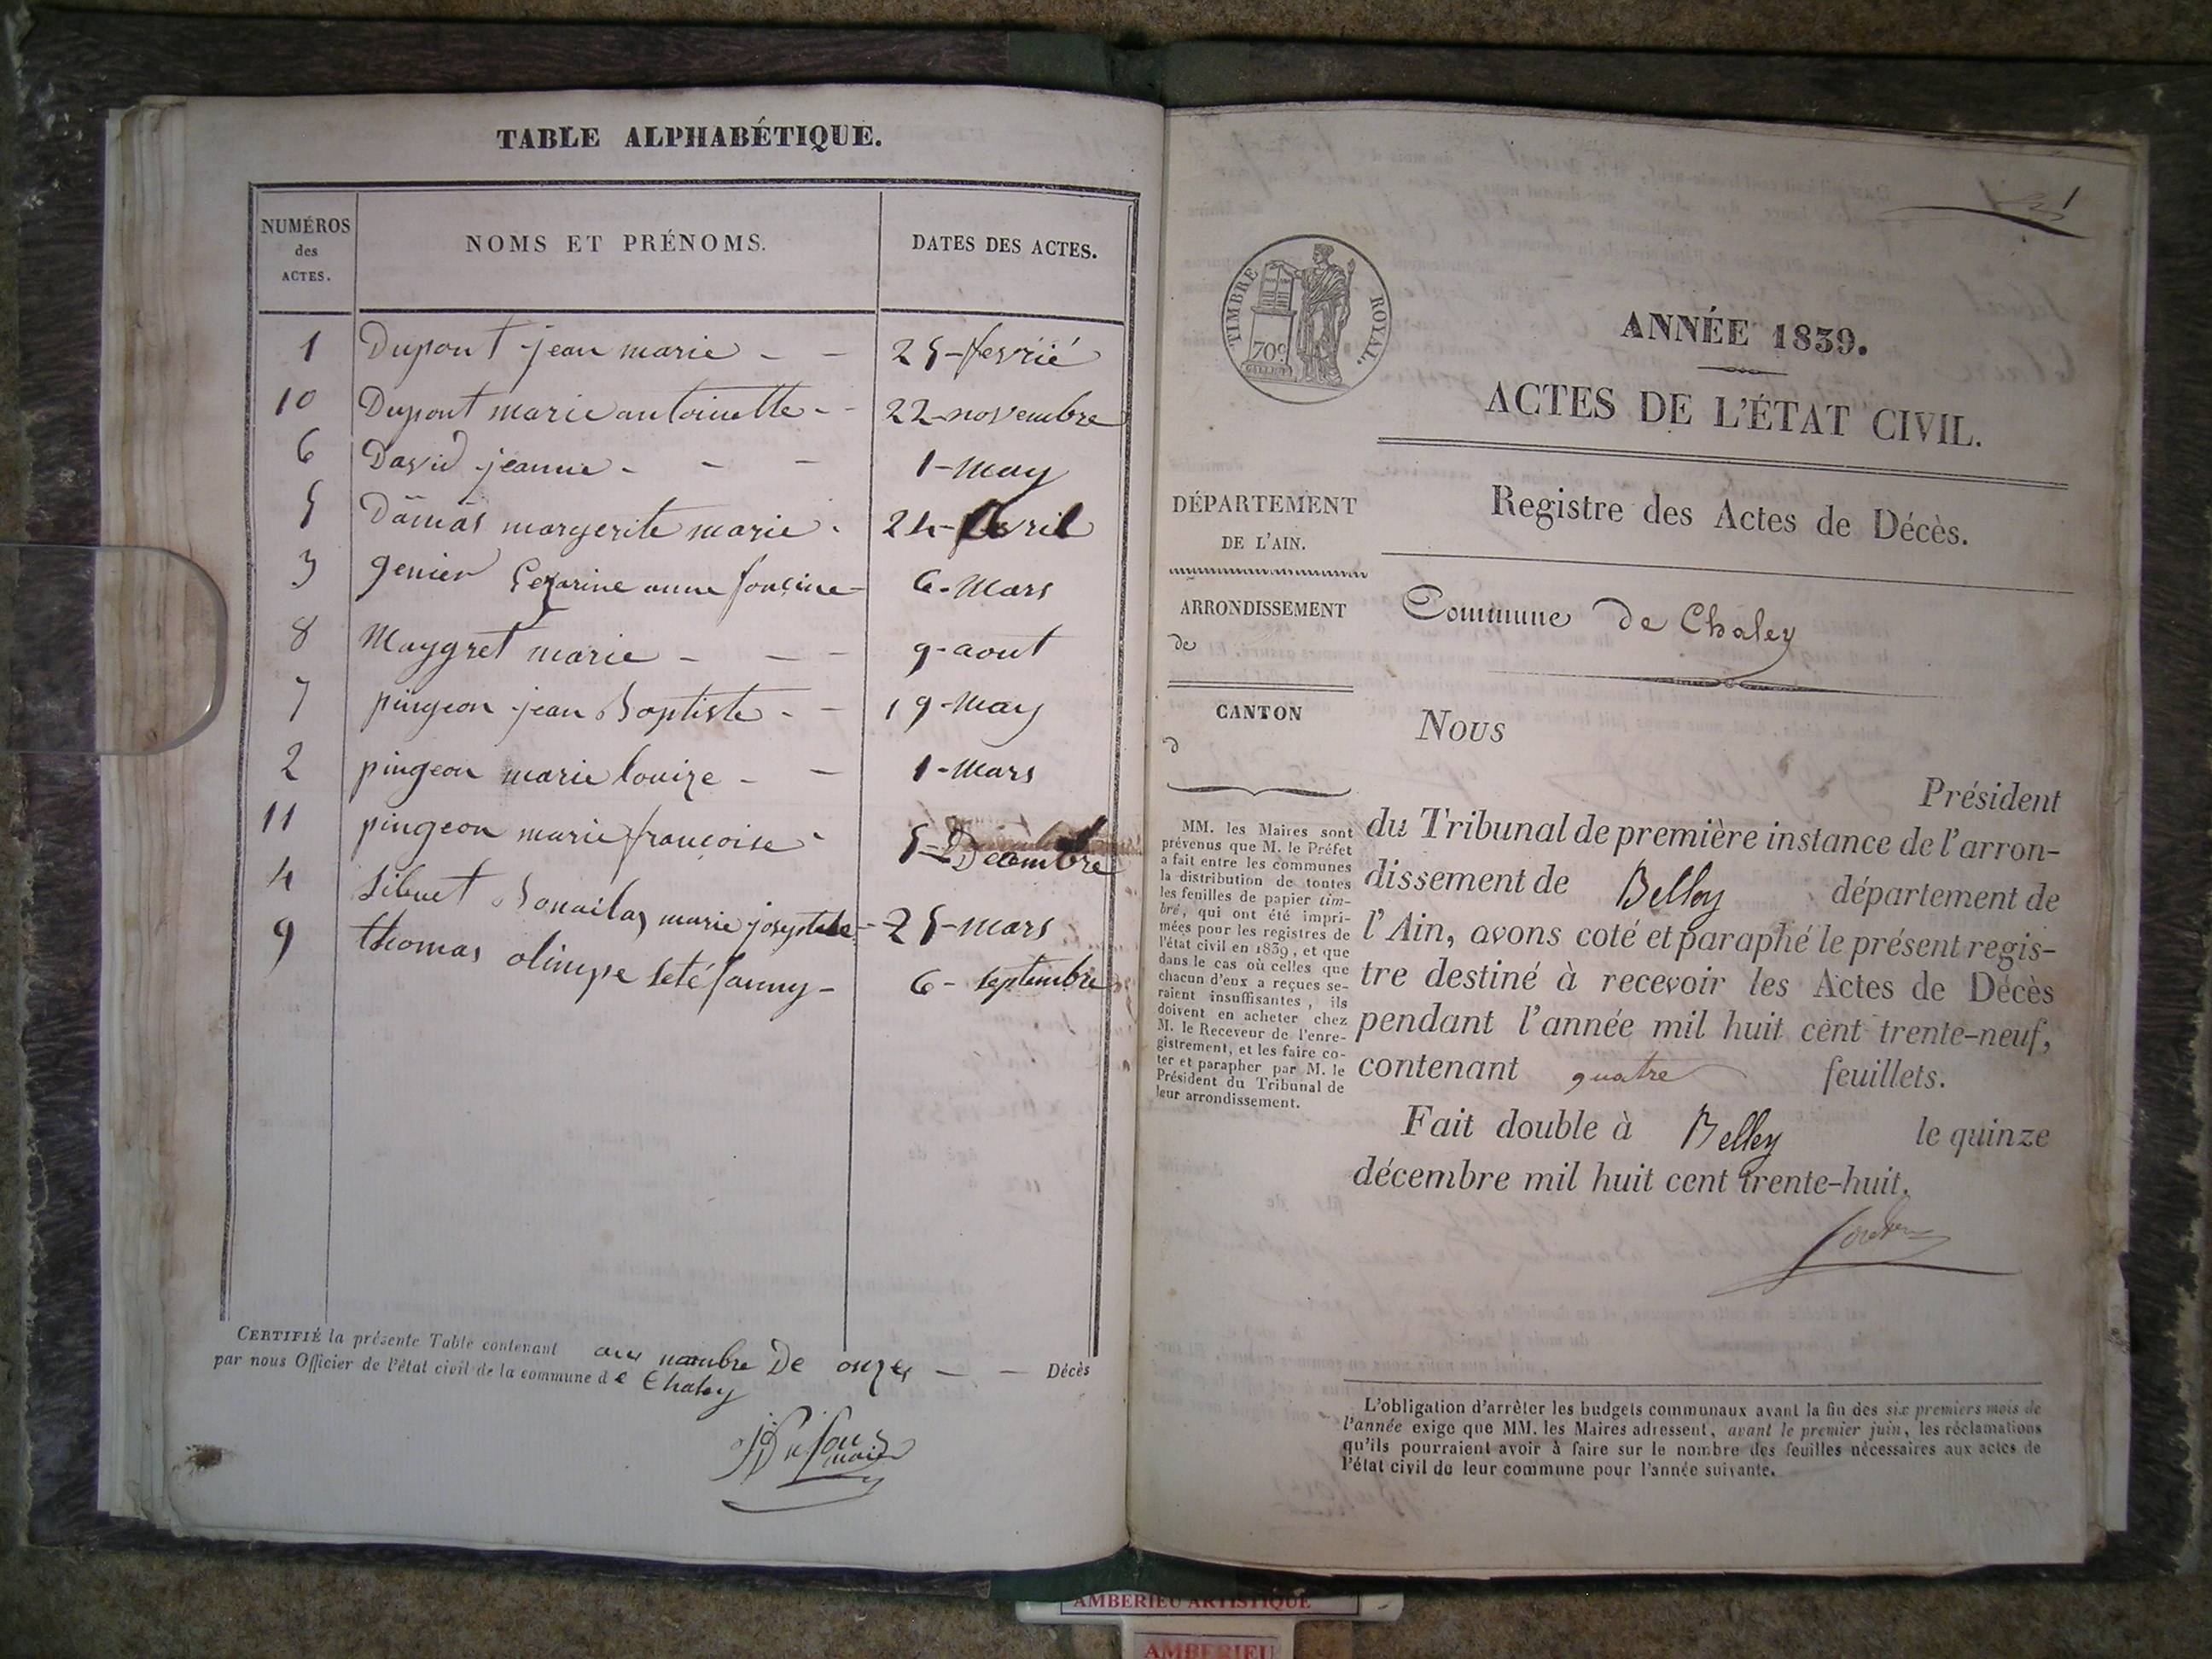 TABLE ALPHABÉTIQUE.
NUMÉROS
des
ACTES.
NOMS ET PRÉNOMS.
DATES DES ACTES.
1 Dupont jean marie - - 25-fevrié
10 Dupont marie antoinette - - 22-novembre
6 David jeanne - - - 1-may
5 Damas margerite marie - 24-Avril
3 genier Cezarine anne - 6-Mars
8 Maygret marie - - - 9-aout
7 pingeon jean Baptiste - - 19-May
2 pingeon marie louize - - 1-Mars
11 pingeon marie françoise - 5-Decembre
4 Sibuet marie - 25-mars
9 thomas olimpe fanny - 6-septembre
CERTIFIÉ la présente Table contenant au nombre De onze - - Décès
par nous Officier de l'état civil de la commune de Chaley
maire
1
TIMBRE ROYAL.
70c
ANNÉE 1839.
ACTES DE L'ÉTAT CIVIL.
Registre des Actes de Décès.
Commune de Chaley
DÉPARTEMENT
DE L'AIN.
ARRONDISSEMENT
de
CANTON
d
MM. les Maires sont
prévenus que M. le Préfet
a fait entre les communes
la distribution de toutes
les feuilles de papier tim-
bré, qui ont été impri-
mées pour les registres de
l'état civil en 1839, et que
dans le cas où celles que
chacun d'eux a reçues se-
raient insuffisantes, ils
doivent en acheter chez
M. le Receveur de l'enre-
gistrement, et les faire co-
ter et parapher par M. le
Président du Tribunal de
leur arrondissement.
Nous
Président
du Tribunal de première instance de l'arron-
dissement de Belley département de
l'Ain, avons coté et paraphé le présent regis-
tre destiné à recevoir les Actes de Décès
pendant l'année mil huit cent trente-neuf,
contenant quatre feuillets.
Fait double à Belley le quinze
décembre mil huit cent trente-huit.
L'obligation d'arrêter les budgets communaux avant la fin des six premiers mois de
l'année exige que MM. les Maires adressent, avant le premier juin, les réclamations
qu'ils pourraient avoir à faire sur le nombre des feuilles nécessaires aux actes de
l'état civil de leur commune pour l'année suivante.
AMBERIEU ARTISTIQUE
AMBERIEU